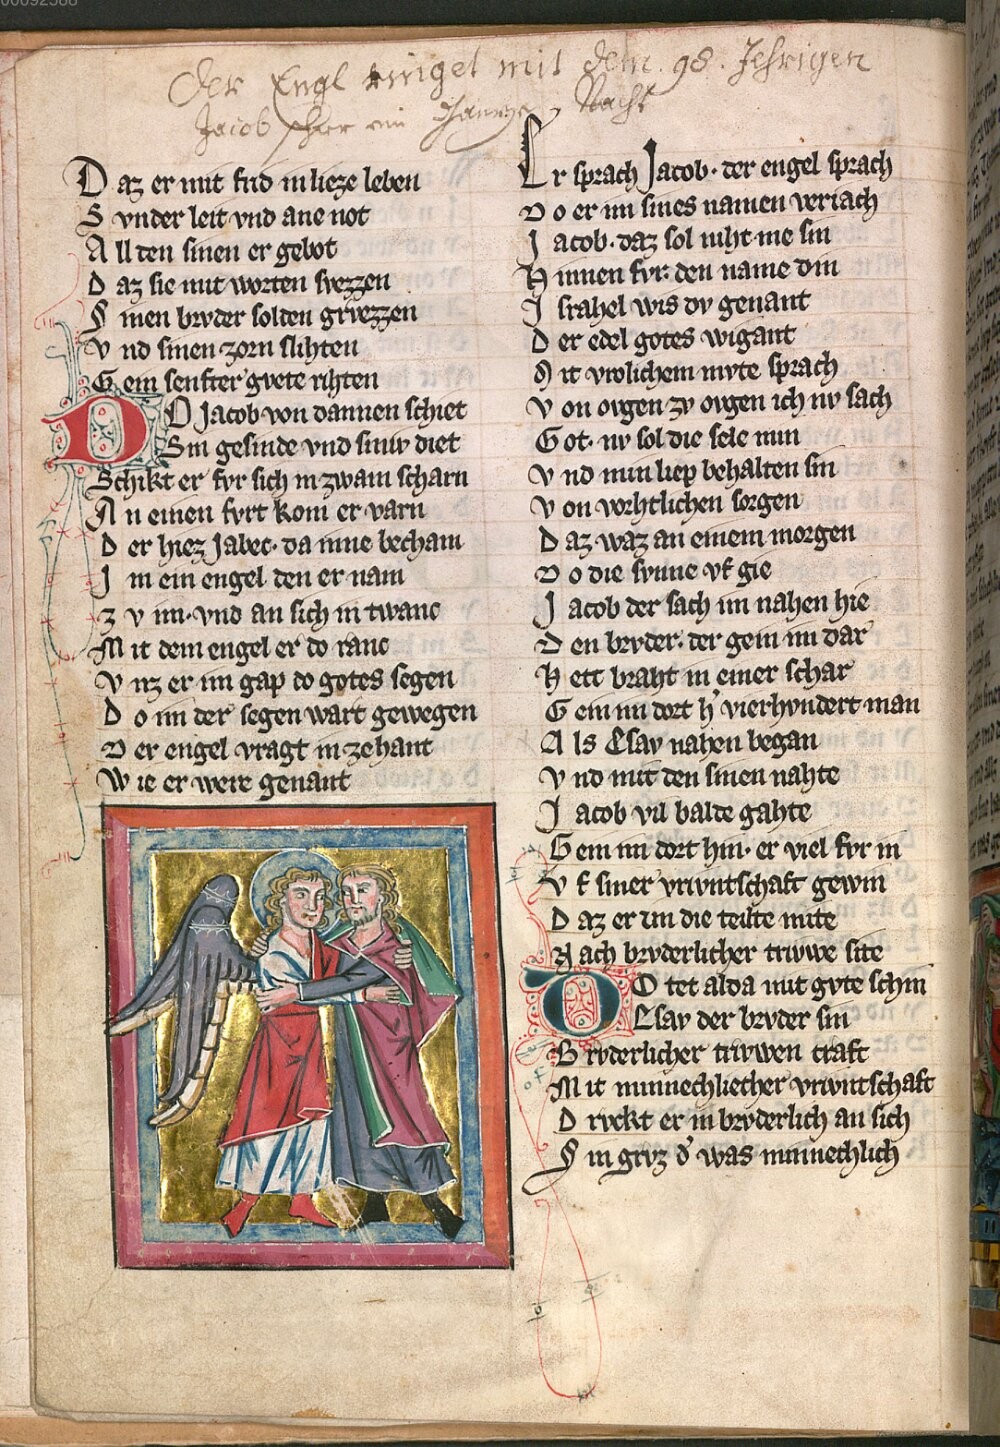 00092588
Der Engl ringet mit dem 98. Jehrigen
Jacob schier ein Nacht
Daz er mit frid in lieze leben
Svnder leit vnd ane not
All den sinen er gebot
Daz sie mit worten svezzen
Sinen brvder solden grvezzen
Vnd sinen zorn slihten
Gein senfter gvete rihten
DO Jacob von dannen schiet
Sin gesinde vnd siniv diet
Schikt er fvr sich in zwain scharn
An einen fvrt kom er varn
Der hiez Jabec· da inne becham
Im ein engel den er nam
Zv im· vnd an sich in twanc
Mit dem engel er do ranc
Vnz er im gap do gotes segen
Do im der segen wart gewegen
Der engel vragt in zehant
Wie er were genant
Er sprach Jacob· der engel sprach
Do er im sines namen veriach
Jacob· daz sol niht me sin
Hinnen fvr den name din
Israhel wis dv genant
Der edel gotes wigant
Mit vrolichem mvte sprach
Von ovgen zv ovgen ich nv sach
Got· nv sol die sele min
Vnd min liep behalten sin
Von vorhtlichen sorgen
Daz waz an einem morgen
Do die svnne vf gie
Jacob der sach im nahen hie
Den brvder· der gein im dar
Hett braht in einer schar
Gein im dort h' vierhvndert man
Als Esav nahen began
Vnd mit den sinen nahte
Jacob vil balde gahte
Gein im dort hin· er viel fvr in
Vf siner vrivntschaft gewin
Daz er im die teilte mite
Nach brvderlicher trivwe site
DO tet alda mit gvte schin
Esav der brvder sin
Brvderlicher trivwen craft
Mit minnechlicher vrivntschaft
Drvckt er in brvderlich an sich
Sin grvz d' was minnechlich